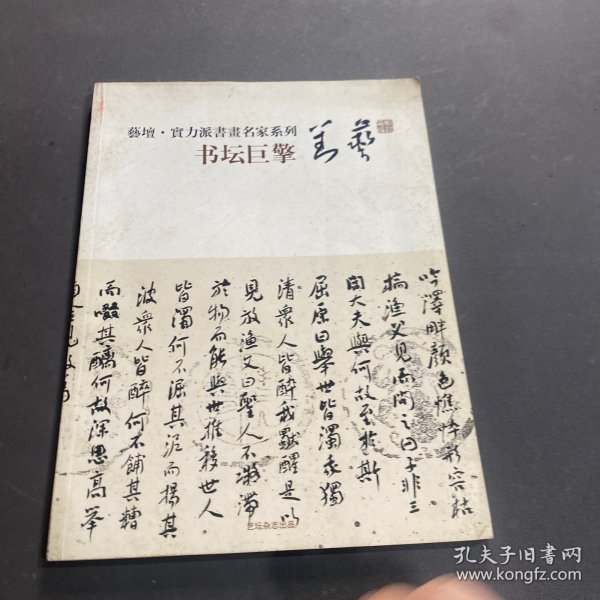 藝壇·實力派書畫名家系列
书坛巨擎
吟澤畔顏色憔悴形容枯
槁漁父見而問之曰子非三
閭大夫與何故至於斯
屈原曰舉世皆濁我獨
清衆人皆醉我獨醒是以
見放漁父曰聖人不凝滯
於物而能與世推移世人
皆濁何不淈其泥而揚其
波衆人皆醉何不餔其糟
而啜其醨何故深思高舉
艺坛杂志出品
孔夫子旧书网
www.kongfz.com